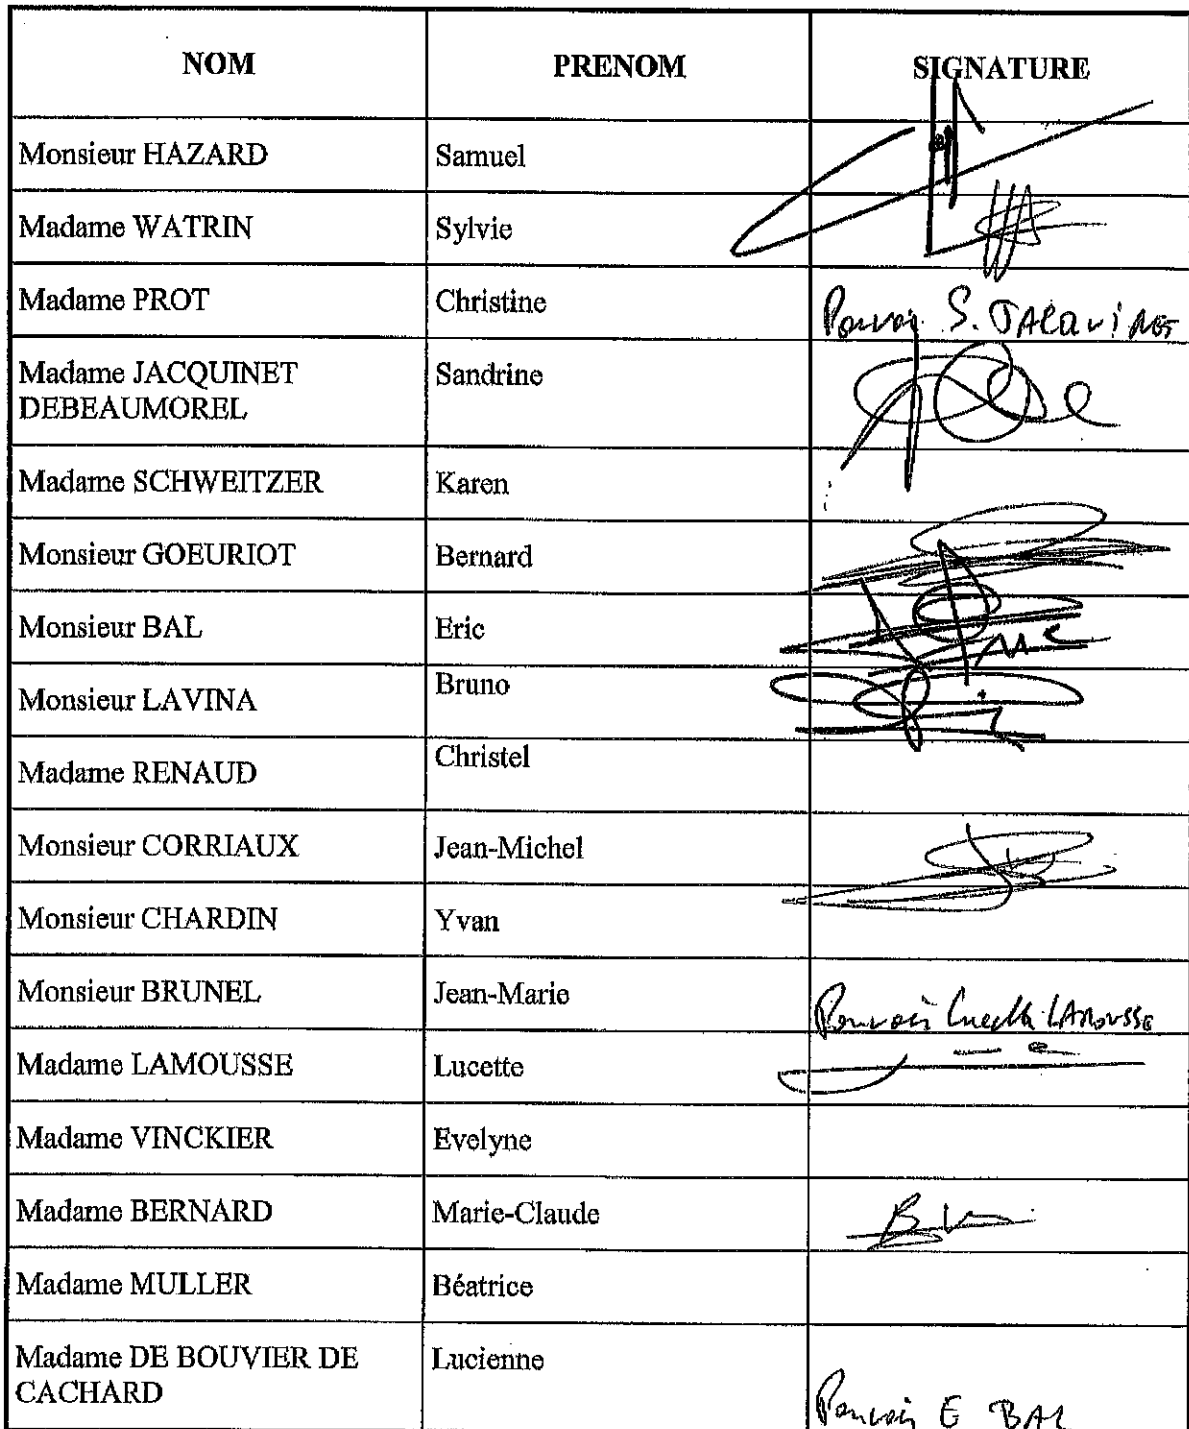 NOM PRENOM SIGNATURE
Monsieur HAZARD Samuel
Madame WATRIN Sylvie
Madame PROT Christine Pouvoir S. JACQUINET
Madame JACQUINET Sandrine
DEBEAUMOREL
Madame SCHWEITZER Karen
Monsieur GOEURIOT Bernard
Monsieur BAL Eric
Monsieur LAVINA Bruno
Madame RENAUD Christel
Monsieur CORRIAUX Jean-Michel
Monsieur CHARDIN Yvan
Monsieur BRUNEL Jean-Marie Pouvoir Lucette LAMOUSSE
Madame LAMOUSSE Lucette
Madame VINCKIER Evelyne
Madame BERNARD Marie-Claude
Madame MULLER Béatrice
Madame DE BOUVIER DE Lucienne
CACHARD Pouvoir E BAL